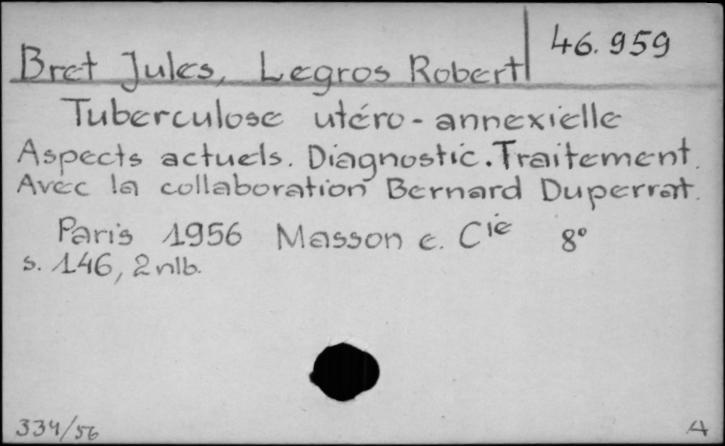 46.959
Bret Jules, Legros Robert
Tuberculose utéro-annexielle
Aspects actuels. Diagnostic. Traitement.
Avec la collaboration Bernard Duperrat.
Paris 1956 Masson e. Cie 8°
s. 146, 2 nlb.
334/56 A